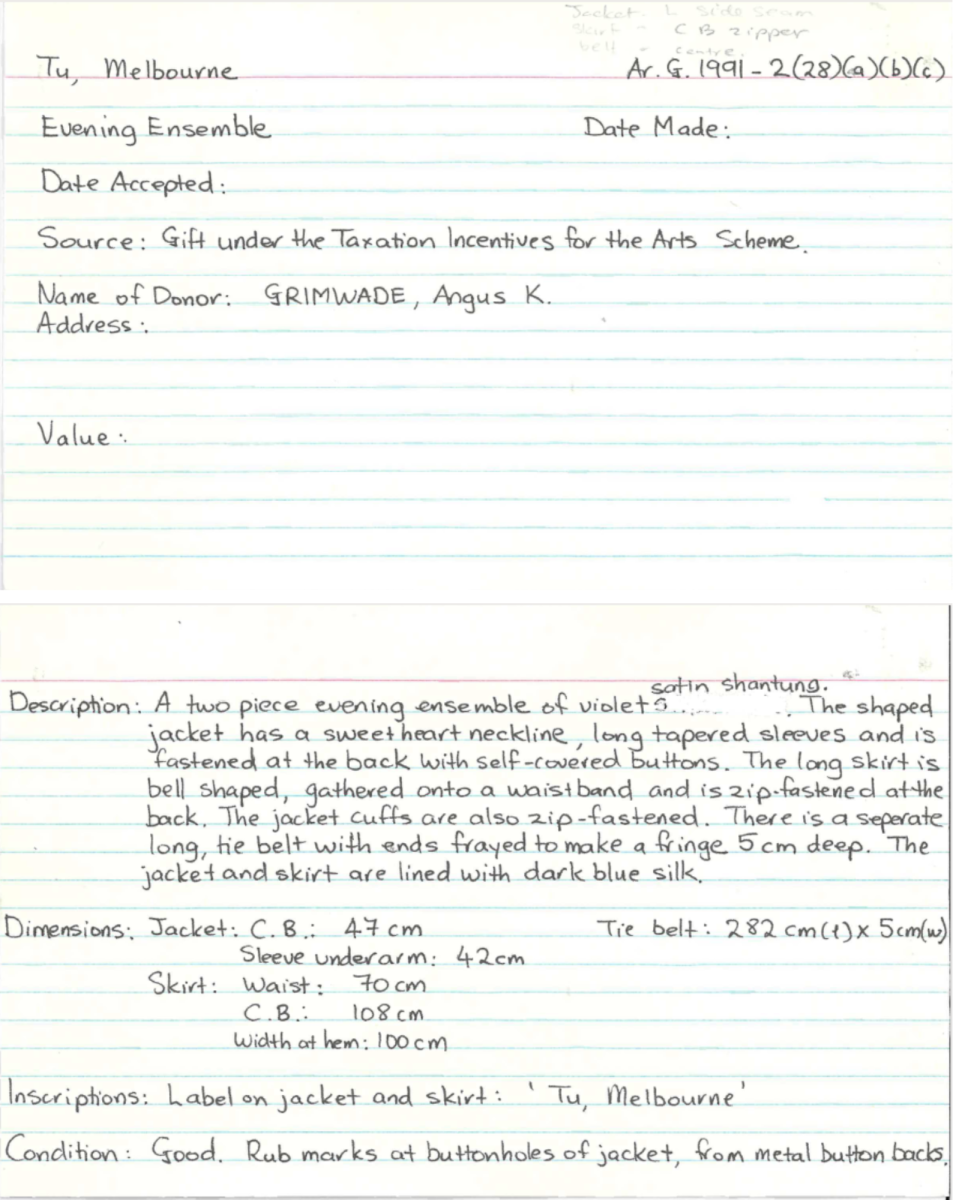 Jacket - L side seam
Skirt - C B zipper
belt - centre.
Tu, Melbourne
Ar. G. 1991 - 2(28)(a)(b)(c)
Evening Ensemble
Date Made:
Date Accepted:
Source: Gift under the Taxation Incentives for the Arts Scheme.
Name of Donor: GRIMWADE, Angus K.
Address:
Value:
satin shantung.
Description: A two piece evening ensemble of violet s........ The shaped
jacket has a sweetheart neckline, long tapered sleeves and is
fastened at the back with self-covered buttons. The long skirt is
bell shaped, gathered onto a waistband and is zip-fastened at the
back. The jacket cuffs are also zip-fastened. There is a seperate
long, tie belt with ends frayed to make a fringe 5 cm deep. The
jacket and skirt are lined with dark blue silk.
Dimensions: Jacket: C.B.: 47 cm
Tie belt: 282 cm(l) x 5cm(w)
Sleeve underarm: 42cm
Skirt: Waist: 70 cm
C.B.: 108 cm
Width at hem: 100 cm
Inscriptions: Label on jacket and skirt: 'Tu, Melbourne'
Condition: Good. Rub marks at buttonholes of jacket, from metal button backs.